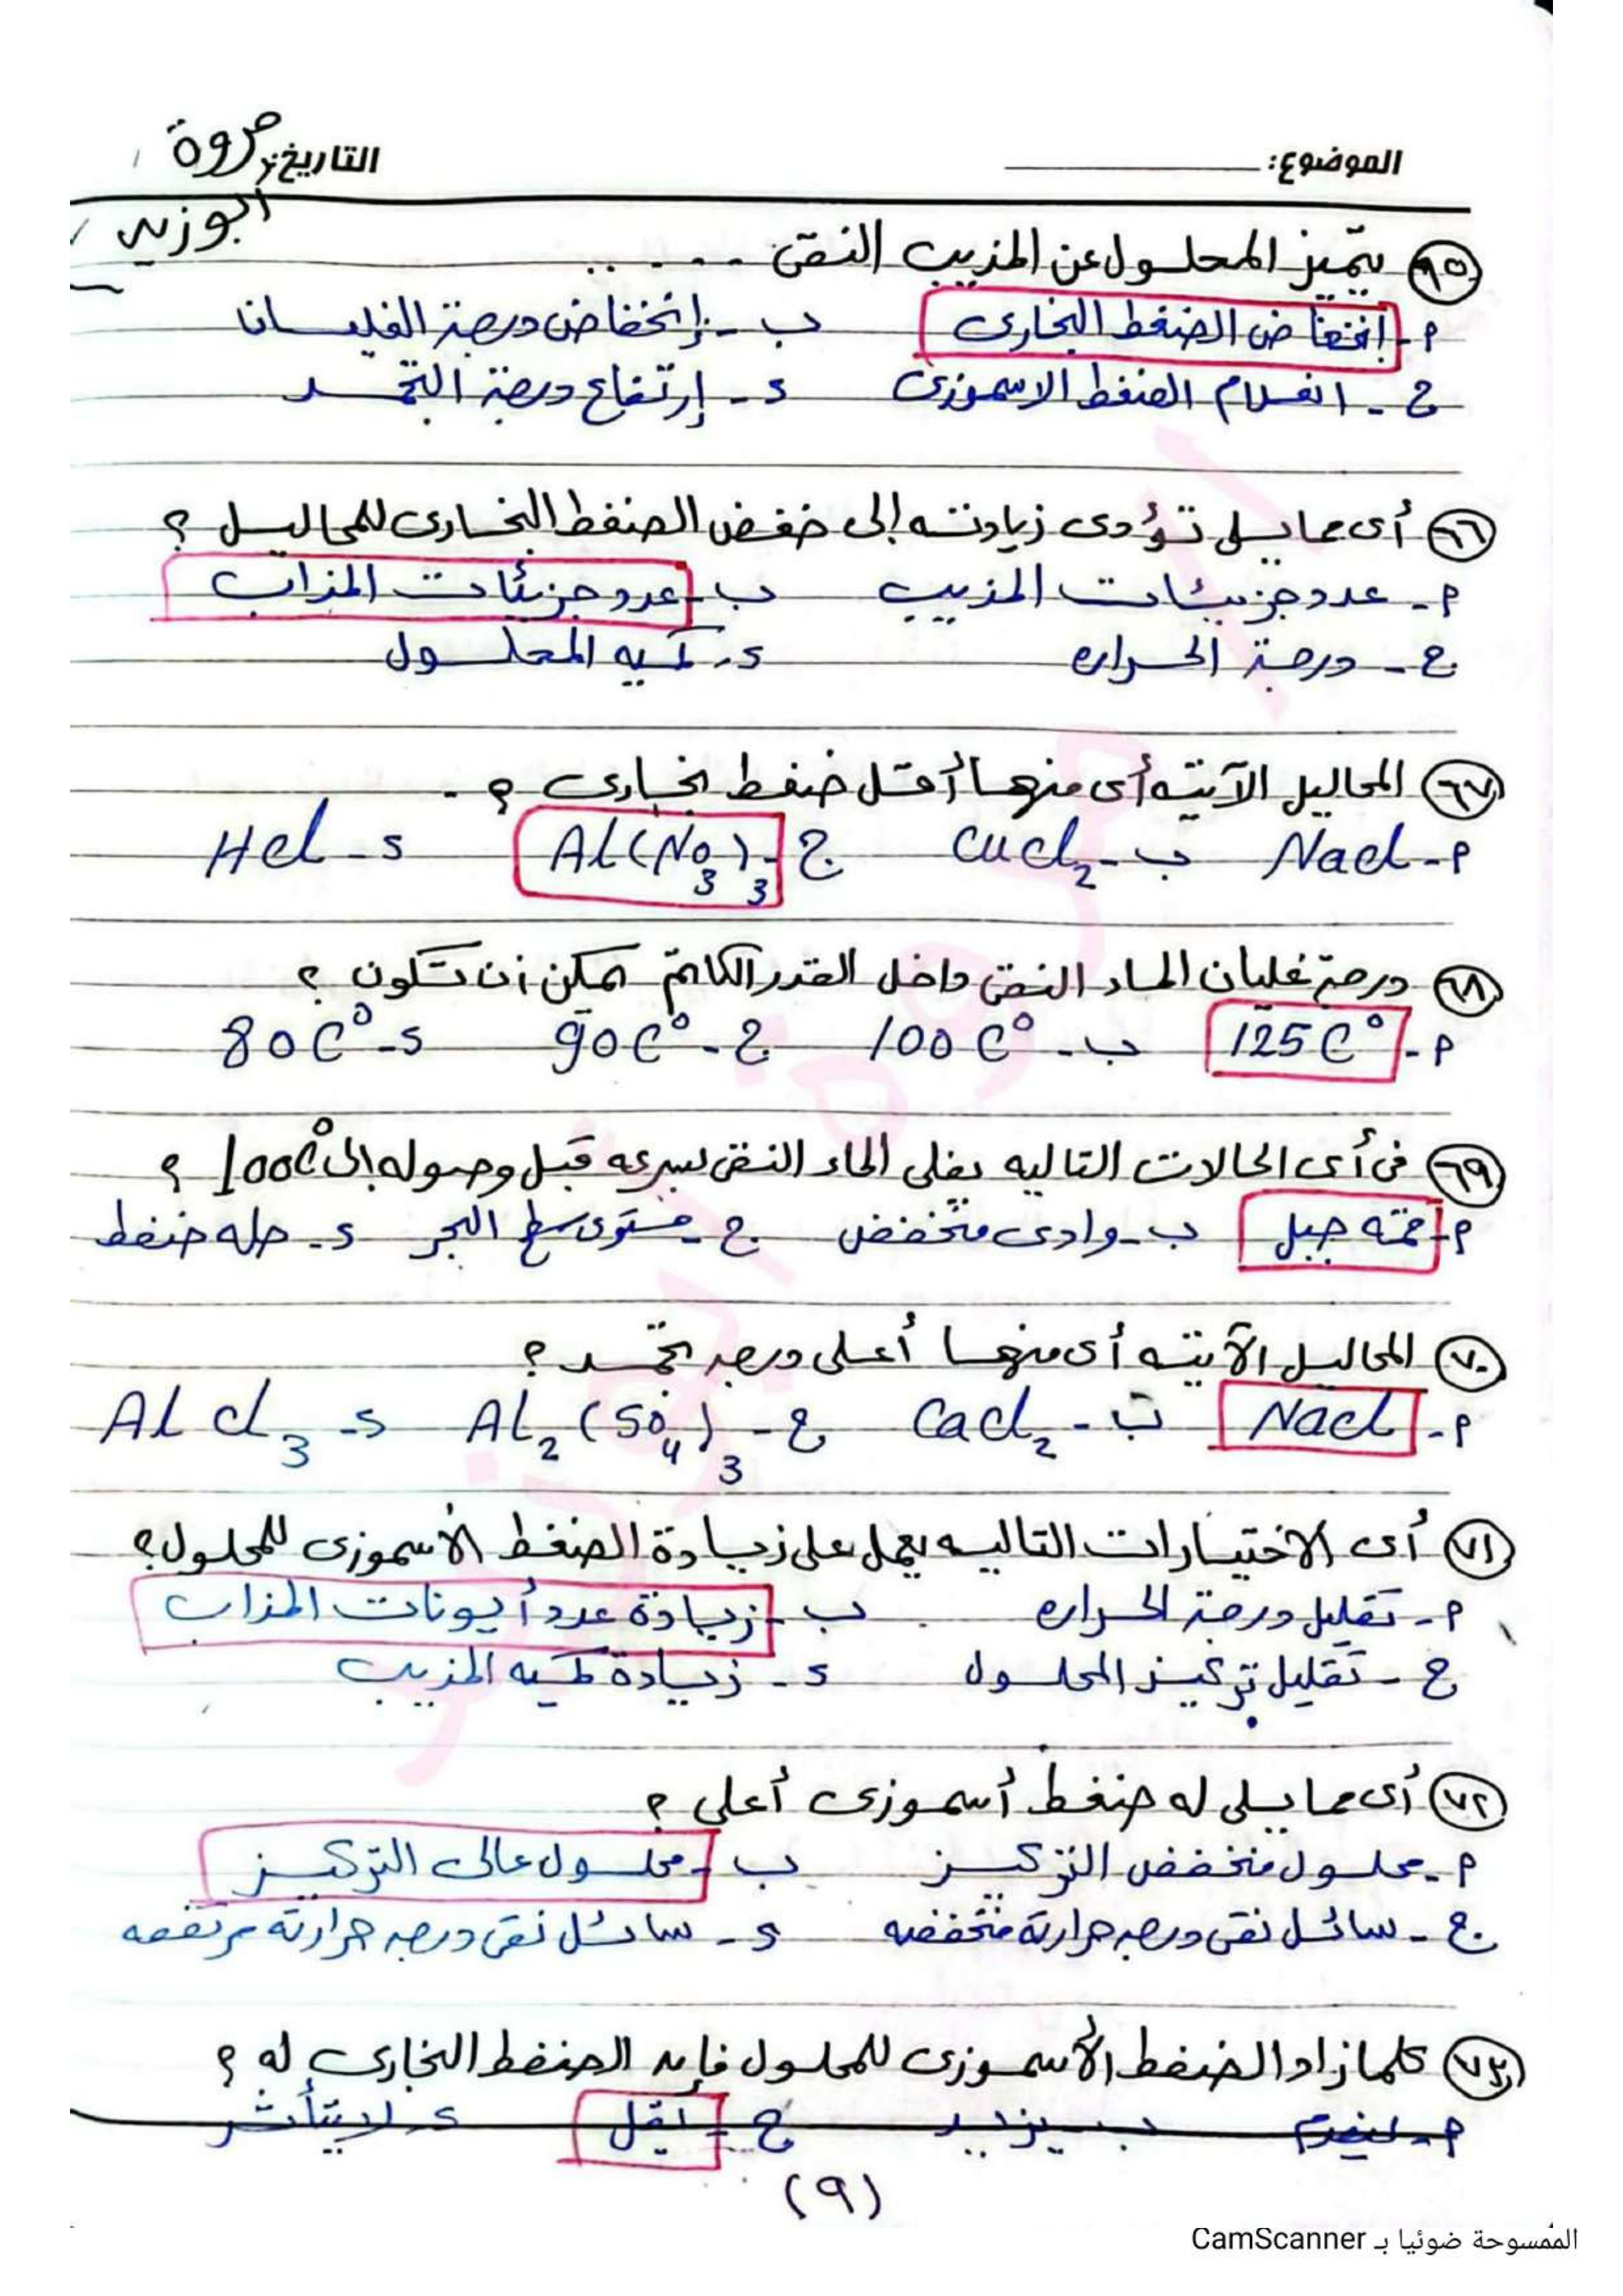 الموضوع: التاريخ: مروة
أبوزيد
٦٥ يتميز المحلول عن المذيب النقى .....
م - إنخفاض الضغط البخارى ب - إنخفاض درجة الغليان
ج - انعدام الضغط الاسموزى د - إرتفاع درجة التجمد
٦٦ أى مما يلى تؤدى زيادته إلى خفض الضغط البخارى للمحاليل ؟
م - عدد جزيئات المذيب ب - عدد جزيئات المذاب
ج - درجة الحراره د - كميه المحلول
٦٧ المحاليل الآتيه أى منها أقل ضغط بخارى ؟
م - Nacl ب - CuCl2 ج - Al(No3)3 د - Hcl
٦٨ درجة غليان الماء النقى داخل القدر الكاتم يمكن أن تكون ؟
م - 125C° ب - 100C° ج - 90C° د - 80C°
٦٩ فى أى الحالات التاليه يغلى الماء النقى بسرعه قبل وصوله إلى 100C° ؟
م - قمه جبل ب - وادى منخفض ج - مستوى سطح البحر د - حله ضغط
٧٠ المحاليل الآتيه أى منها أعلى درجه تجمد ؟
م - Nacl ب - Cacl2 ج - Al2(So4)3 د - Alcl3
٧١ أى الاختيارات التاليه يعمل على زيادة الضغط الأسموزى للمحلول؟
م - تقليل درجة الحراره ب - زيادة عدد أيونات المذاب
ج - تقليل تركيز المحلول د - زيادة كميه المذيب
٧٢ أى مما يلى له ضغط أسموزى أعلى ؟
م - محلول منخفض التركيز ب - محلول عالى التركيز
ج - سائل نقى درجه حرارته منخفضه د - سائل نقى درجه حرارته مرتفعه
٧٣ كلما زاد الضغط الأسموزى للمحلول فإن الضغط البخارى له ؟
م - ينعدم ب - يزيد ج - يقل د - لا يتأثر
(٩)
الممسوحة ضوئيا بـ CamScanner